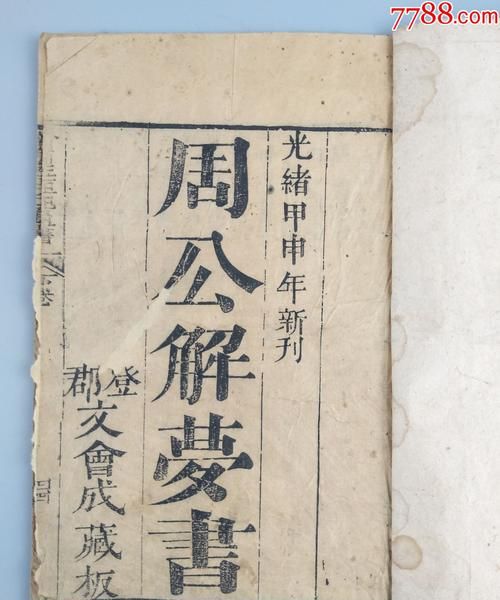 7788.com
光緒甲申年新刊
周公解夢書
登郡文會成藏板